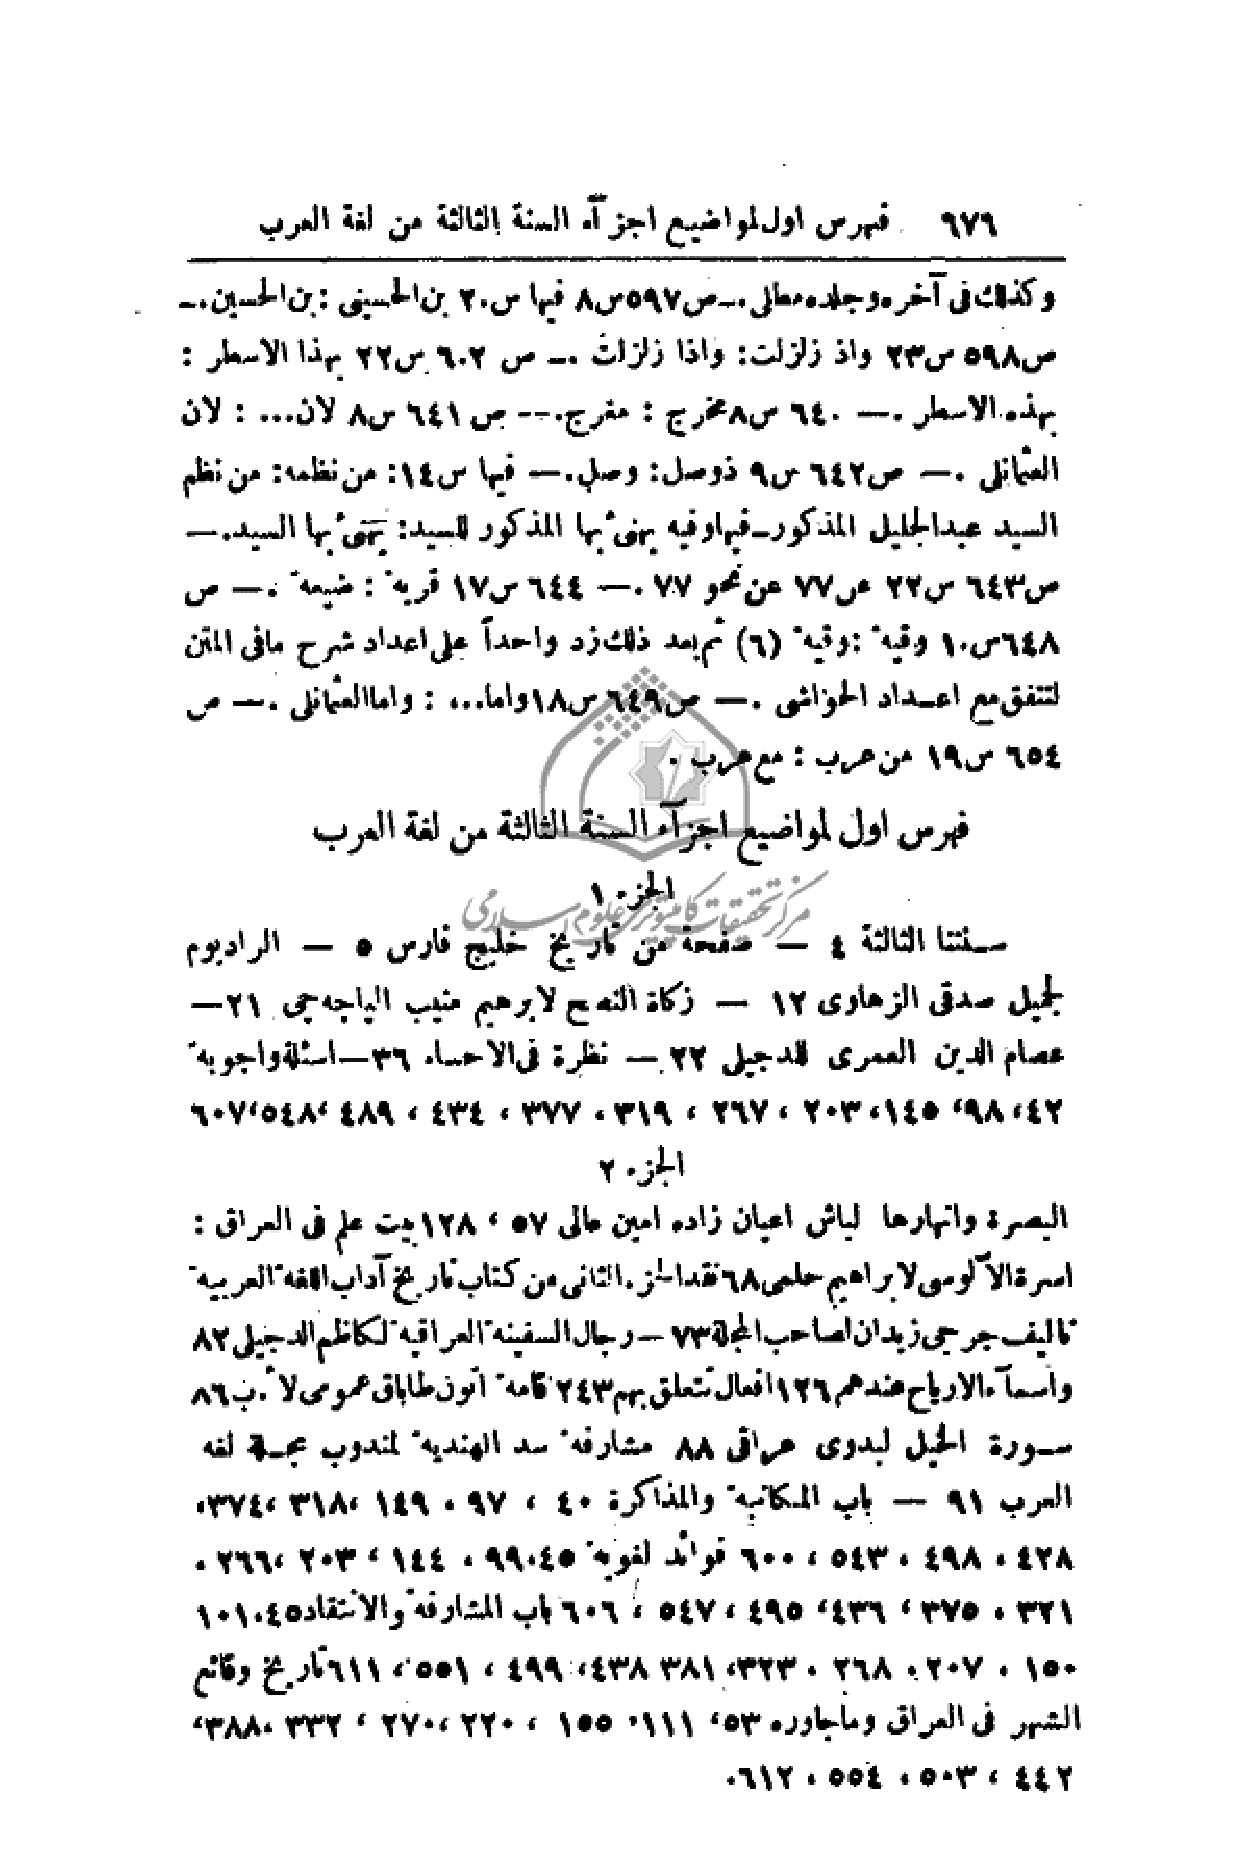 ٦٧٦ فهرس اول لمواضيع اجزآء السنة الثالثة من لغة العرب
وكذلك فى آخره وجلده معالى .ــ ص٥٩٧ س٨ فيها س٢٠ بن الحسينى : بن الحسين .ــ
ص٥٩٨ س٢٣ واذ زلزلت: واذا زلزلت .ــ ص ٦٠٢ س٢٢ بهذا الاسطر :
بهذه الاسطر .ــ ٦٤٠ س٨ مخرج : مفرج .ــ ص ٦٤١ س٨ لان... : لان
العثمانلى .ــ ص٦٤٢ س٩ ذوصل: وصل .ــ فيها س١٤: من نظمه: من نظم
السيد عبدالجليل المذكور ــ فيها وفيه يهنئ بها المذكور للسيد: يهنئ بها السيد .ــ
ص٦٤٣ س٢٢ ص٧٧ عن نحو ٧٧ .ــ ٦٤٤ س١٧ قرية : ضيعة .ــ ص
٦٤٨ س١٠ وقية : وقية (٦) ثم بعد ذلك زد واحداً على اعداد شرح مافى المتن
لتتفق مع اعــداد الحواشى .ــ ص٦٤٩ س١٨ واما..، : واما العثمانلى .ــ ص
٦٥٤ س١٩ من عرب : مع عرب .
فهرس اول لمواضيع اجزآء السنة الثالثة من لغة العرب
الجزء ١
ســنتنا الثالثة ٤ ــ صفحة من تاريخ خليج فارس ٥ ــ الراديوم
لجميل صدقى الزهاوى ١٢ ــ زكاة النصح لابرهيم منيب الپاجه‌جى ٢١ــ
عصام الدين العمرى للدجيلى ٢٢ ــ نظرة فى الاحساء ٣٦ــ اسئلة واجوبة
٤٢، ٩٨، ١٤٥، ٢٠٣ ، ٢٦٧ ، ٣١٩ ، ٣٧٧ ، ٤٣٤ ، ٤٨٩ ، ٥٤٨، ٦٠٧
الجزء ٢
البصرة وانهارها لباش اعيان زاده امين عالى ٥٧ ، ١٢٨ بيت علم فى العراق :
اسرة الآلوسى لابراهيم حلمى ٦٨ نقد الجزء الثانى من كتاب تاريخ آداب اللغة العربية
تاليف جرجى زيدان لصاحب المجلة ٧٣ ــ رجال السفينة العراقية لكاظم الدجيلى ٨٢
واسمآء الارياح عندهم ١٢٦ افعال تتعلق بهم ٢٤٣ كامة اتون طاباق عمومى لأ.ب ٨٦
ســورة الخيل لبدوى عراقى ٨٨ مشارفة سد الهندية لمندوب مجــلة لغة
العرب ٩١ ــ باب المكاتبة والمذاكرة ٤٠ ، ٩٧ ، ١٤٩ ، ٣١٨ ، ٣٧٤،
٤٢٨ ، ٤٩٨ ، ٥٤٣ ، ٦٠٠ فوائد لغوية ٤٥ ، ٩٩ ، ١٤٤ ، ٢٠٣ ، ٢٦٦ ،
٣٢١ ، ٣٧٥ ، ٤٣٦ ، ٤٩٥ ، ٥٤٧ ، ٦٠٦ باب المشارفة والانتقاد ٤٥ ، ١٠١
١٥٠ ، ٢٠٧ ، ٢٦٨ ، ٣٢٣، ٣٨١ ٤٣٨ ، ٤٩٩ ، ٥٥١ ، ٦١١ تاريخ وقائع
الشهر فى العراق وماجاوره ٥٣، ١١١، ١٥٥ ، ٢٢٠ ، ٢٧٠ ، ٣٣٢ ، ٣٨٨،
٤٤٢ ، ٥٠٣ ، ٥٥٤ ، ٦١٢.
مركز تحقيقات كامپيوترى علوم اسلامى